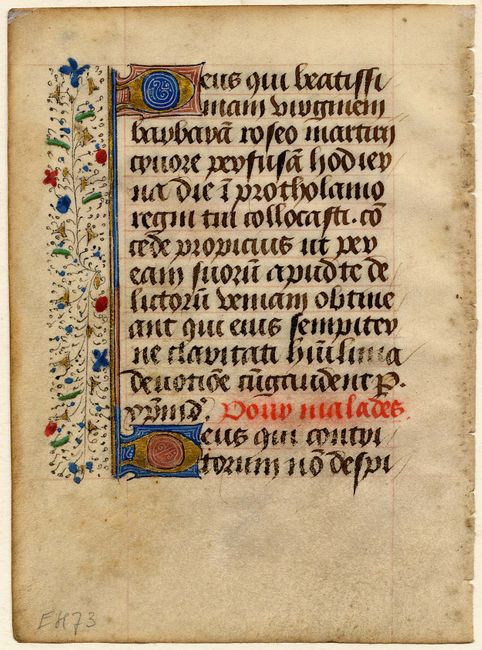 Deus qui beatissi
mam virginem
barbarā roseo martirij
cruore perfusā hodier
na die ī protholamo
regni tui collocasti. cō
cede propicius ut per
eam suorū apud te de
lictorū veniam obtine
ant qui eius sempiter
ne claritati hūilima
devotiōe cōgaudent P.
xr̄m dn̄. Pour malades.
Deus qui contri
torum nō despi
EH73